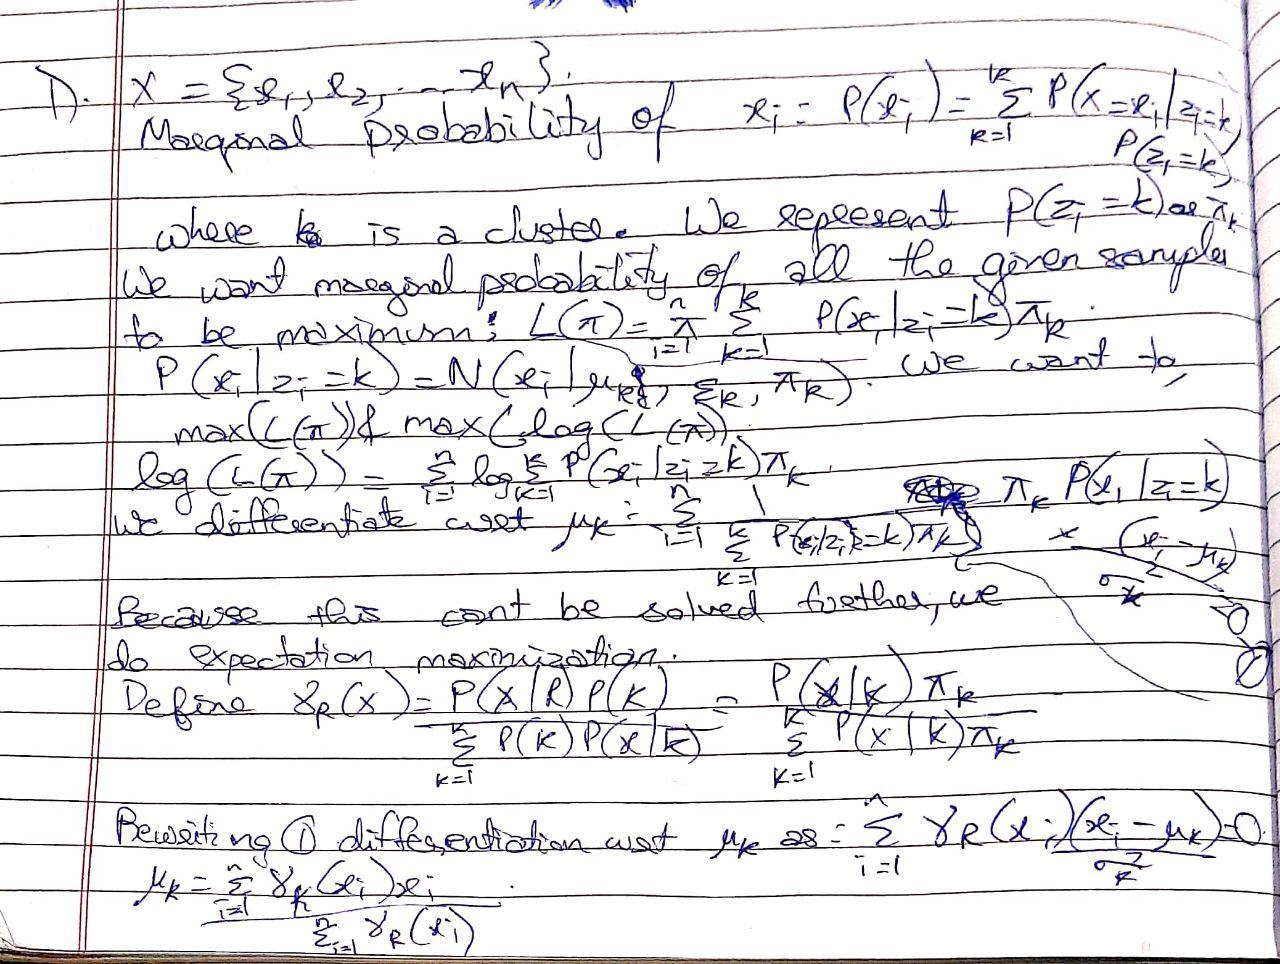 1). X = {x₁, x₂, ... xₙ}.
Marginal probability of xᵢ : P(xᵢ) = Σ_{k=1}^{k} P(X=xᵢ|zᵢ=k) P(zᵢ=k)
where k is a cluster. We represent P(zᵢ=k) as πₖ
We want marginal probability of all the given samples
to be maximum: L(π) = π_{i=1}^{n} Σ_{k=1}^{k} P(xᵢ|zᵢ=k) πₖ.
P(xᵢ|zᵢ=k) = N(xᵢ|μₖ, Σₖ, πₖ). We want to
max(L(π)) & max(log(L(π)).
log(L(π)) = Σ_{i=1}^{n} log Σ_{k=1}^{k} P(xᵢ|zᵢ=k) πₖ.
We differentiate wrt μₖ : Σ_{i=1}^{n} 1 / (Σ_{k=1}^{k} P(xᵢ|zᵢ=k) πₖ) πₖ P(xᵢ|zᵢ=k) × (xᵢ-μₖ)/σₖ² = 0
Because this can't be solved further, we ①
do expectation maximization.
Define γₖ(X) = P(X|k) P(k) / Σ_{k=1}^{k} P(k) P(x|k) = P(x|k) πₖ / Σ_{k=1}^{k} P(x|k) πₖ
Rewriting ① differentiation wrt μₖ as : Σ_{i=1}^{n} γₖ(xᵢ)(xᵢ-μₖ)/σₖ² = 0.
μₖ = Σ_{i=1}^{n} γₖ(xᵢ)xᵢ / Σ_{i=1}^{n} γₖ(xᵢ)